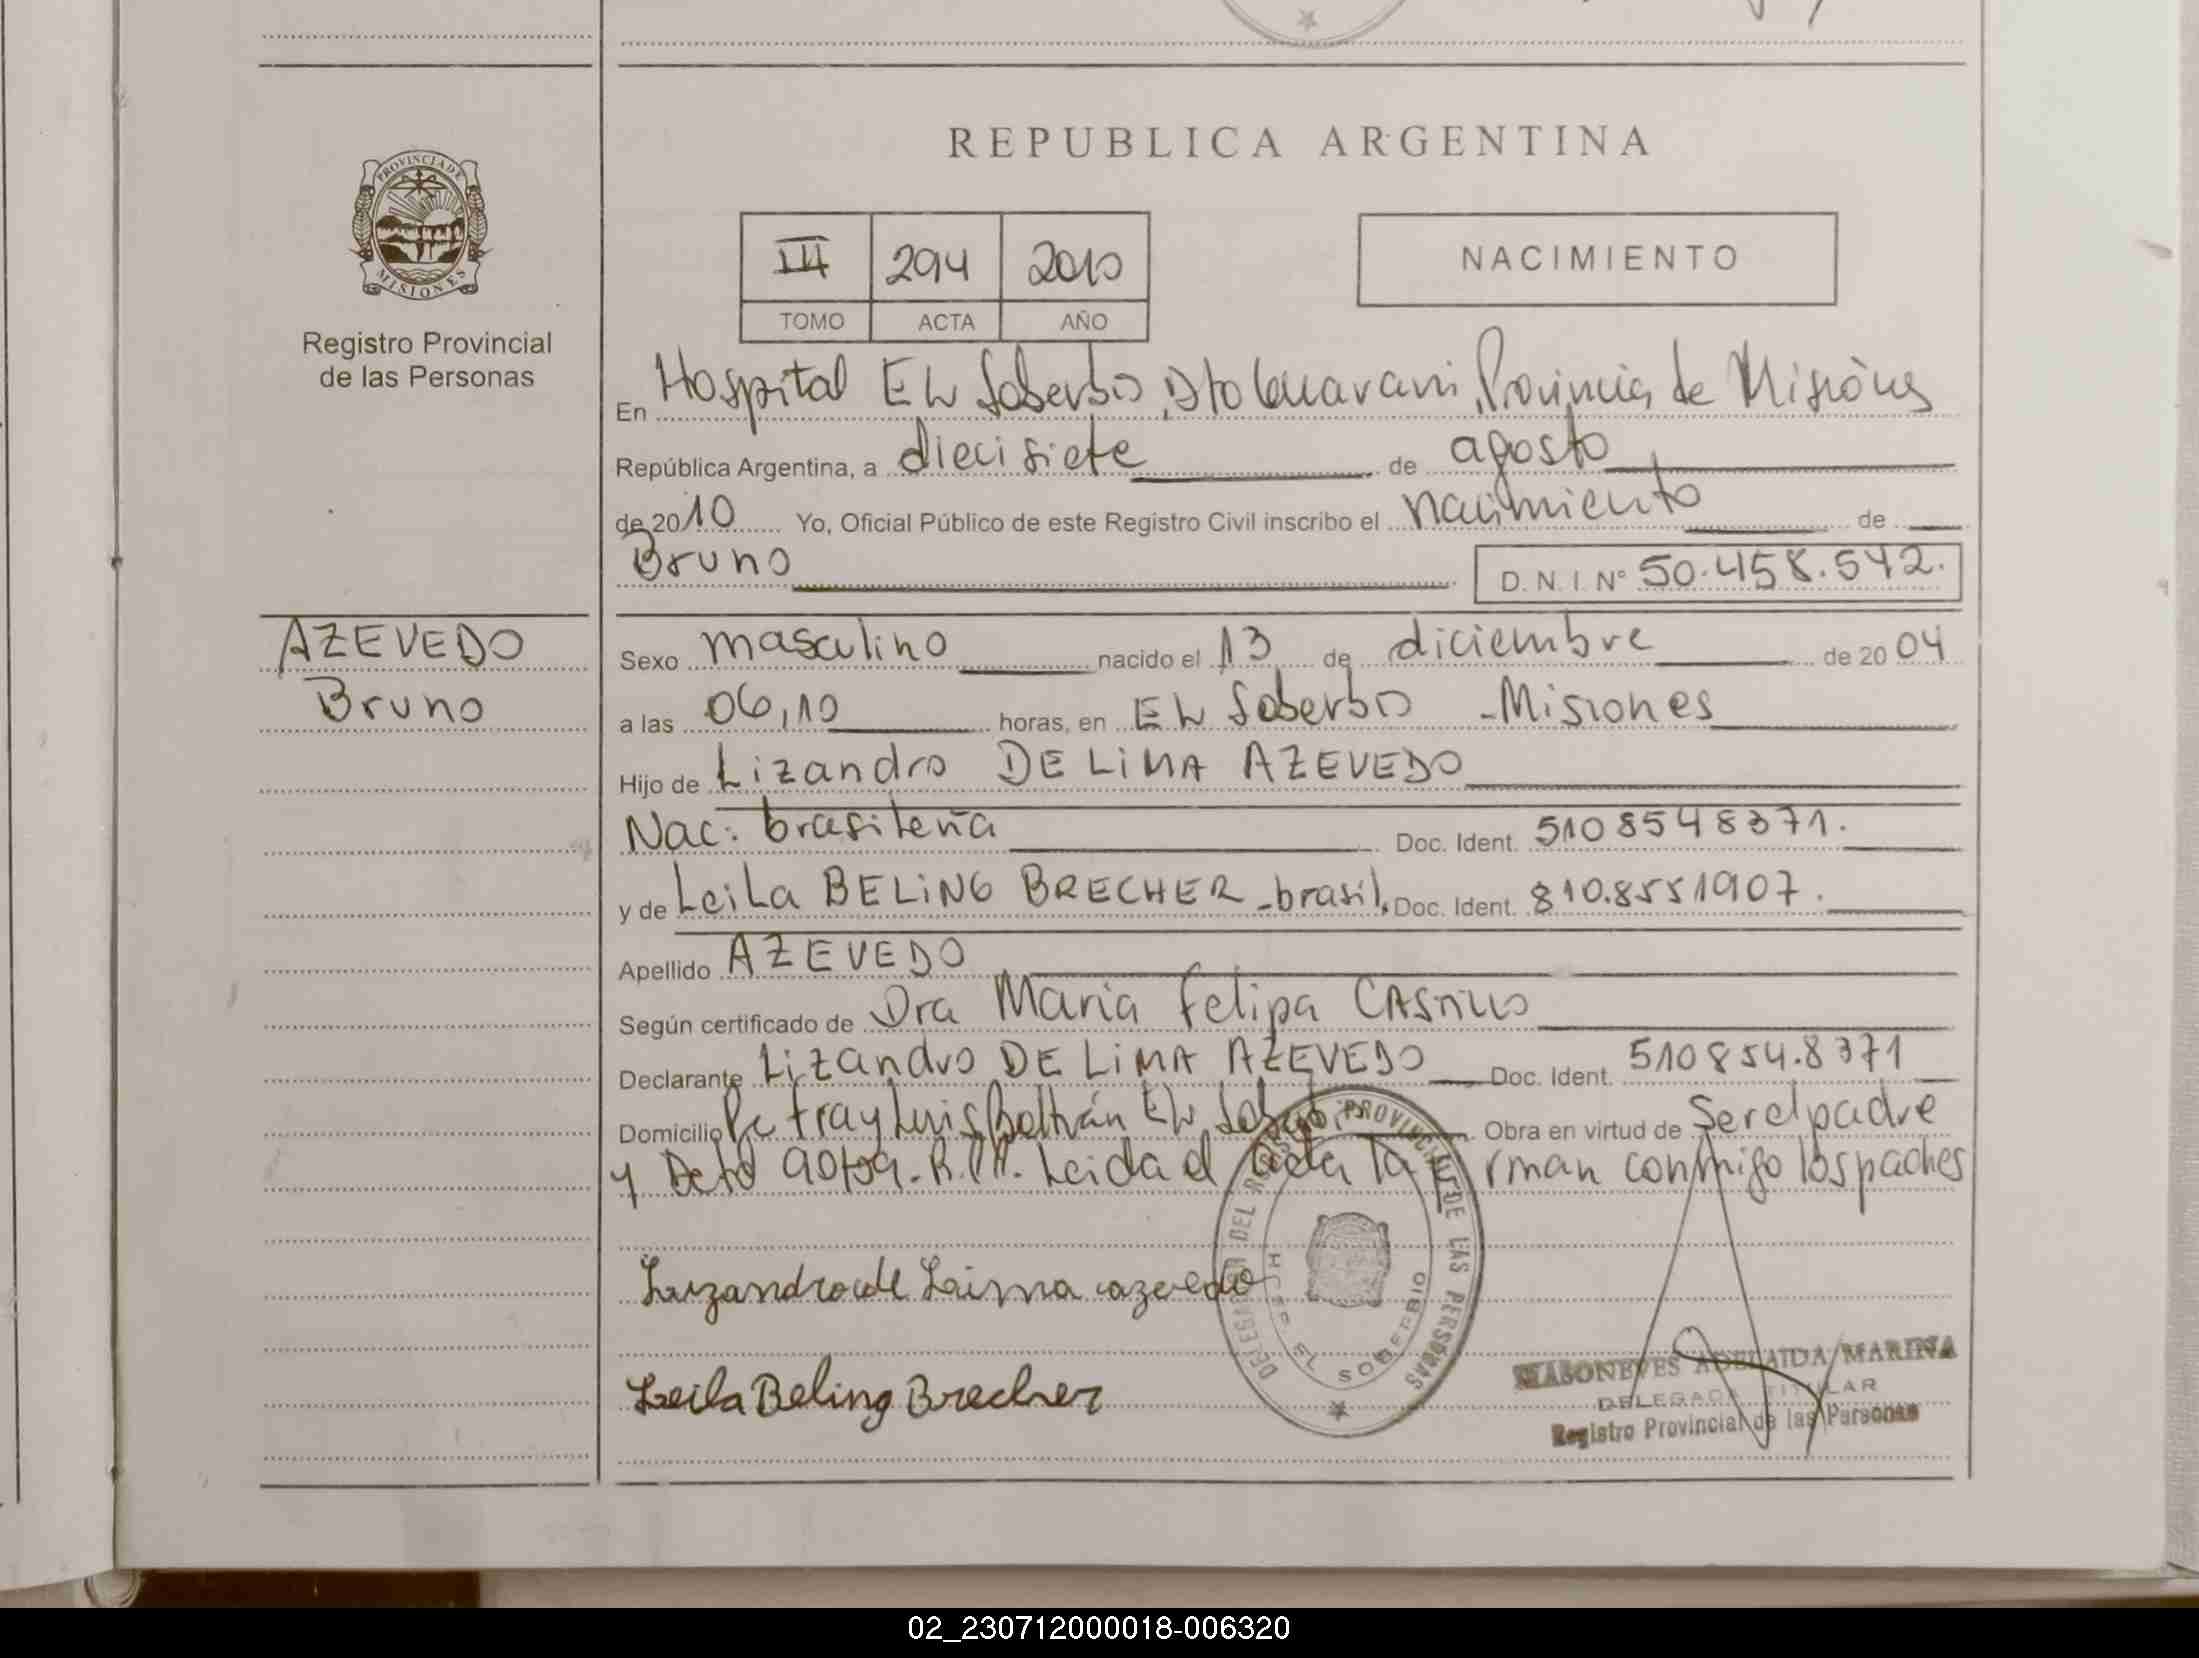 REPUBLICA ARGENTINA
PROVINCIA DE
MISIONES
Registro Provincial
de las Personas
III 294 2010
TOMO ACTA AÑO
NACIMIENTO
En Hospital EL Soberbio, Dto Guarani, Provincia de Misiones
República Argentina, a diecisiete de agosto
de 2010 Yo, Oficial Público de este Registro Civil inscribo el nacimiento de
Bruno D. N. I. N° 50.458.542.
AZEVEDO
Bruno
Sexo masculino nacido el 13 de diciembre de 2004
a las 06,10 horas, en EL Soberbio - Misiones
Hijo de Lizandro DE LIMA AZEVEDO
Nac: brasileña Doc. Ident. 5108548371.
y de LeiLa BELING BRECHER - brasil. Doc. Ident. 810.8551907.
Apellido AZEVEDO
Según certificado de Dra Maria Felipa CASTILLO
Declarante Lizandro DE LIMA AZEVEDO Doc. Ident. 510854.8371
Domicilio Fray Luis Beltrán EL Obra en virtud de Ser el padre
y Leida el acta la rman conmigo los padres
Lizandro de Lima azevedo
Leila Beling Brecher
DELEGACION DEL REGISTRO PROVINCIAL DE LAS PERSONAS
HOSP EL SOBERBIO
ADELAIDA MARINA
DELEGADA TITULAR
Registro Provincial de las Personas
02_230712000018-006320